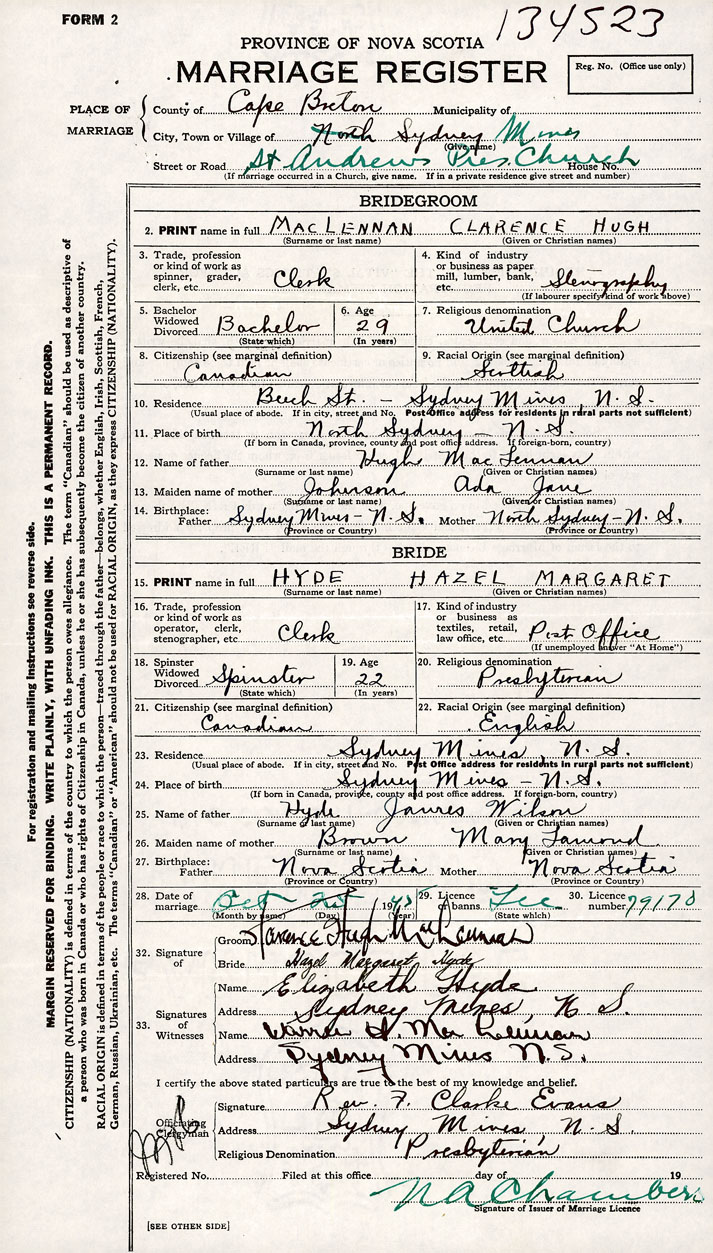 FORM 2
134523
PROVINCE OF NOVA SCOTIA
MARRIAGE REGISTER
Reg. No. (Office use only)
PLACE OF MARRIAGE
County of Cape Breton Municipality of
City, Town or Village of North Sydney Mines
(Give name)
Street or Road St Andrews Pres. Church House No.
(If marriage occurred in a Church, give name. If in a private residence give street and number)
BRIDEGROOM
2. PRINT name in full MACLENNAN CLARENCE HUGH
(Surname or last name) (Given or Christian names)
3. Trade, profession or kind of work as spinner, grader, clerk, etc. Clerk
4. Kind of industry or business as paper mill, lumber, bank, etc. Stenography
(If labourer specify kind of work above)
5. Bachelor Widowed Divorced Bachelor
(State which)
6. Age 29
(In years)
7. Religious denomination
United Church
8. Citizenship (see marginal definition)
Canadian
9. Racial Origin (see marginal definition)
Scottish
10. Residence Beech St. – Sydney Mines, N. S.
(Usual place of abode. If in city, street and No. Post Office address for residents in rural parts not sufficient)
11. Place of birth North Sydney – N. S.
(If born in Canada, province, county and post office address. If foreign-born, country)
12. Name of father Hugh MacLennan
(Surname or last name) (Given or Christian names)
13. Maiden name of mother Johnson Ada Jane
(Surname or last name) (Given or Christian names)
14. Birthplace:
Father Sydney Mines – N. S. Mother North Sydney – N. S.
(Province or Country) (Province or Country)
BRIDE
15. PRINT name in full HYDE HAZEL MARGARET
(Surname or last name) (Given or Christian names)
16. Trade, profession or kind of work as operator, clerk, stenographer, etc. Clerk
17. Kind of industry or business as textiles, retail, law office, etc. Post Office
(If unemployed answer "At Home")
18. Spinster Widowed Divorced Spinster
(State which)
19. Age 22
(In years)
20. Religious denomination
Presbyterian
21. Citizenship (see marginal definition)
Canadian
22. Racial Origin (see marginal definition)
English
23. Residence Sydney Mines, N. S.
(Usual place of abode. If in city, street and No. Post Office address for residents in rural parts not sufficient)
24. Place of birth Sydney Mines – N. S.
(If born in Canada, province, county and post office address. If foreign-born, country)
25. Name of father Hyde James Wilson
(Surname or last name) (Given or Christian names)
26. Maiden name of mother Brown Mary Lamond
(Surname or last name) (Given or Christian names)
27. Birthplace:
Father Nova Scotia Mother Nova Scotia
(Province or Country) (Province or Country)
28. Date of marriage Oct
(Month by name) (Day) (Year)
29. Licence or banns Lic
(State which)
30. Licence number 79170
32. Signature of
Groom Clarence Hugh MacLennan
Bride Hazel Margaret Hyde
33. Signatures of Witnesses
Name Elizabeth Hyde
Address Sydney Mines, N S.
Name MacLennan
Address Sydney Mines N.S.
I certify the above stated particulars are true to the best of my knowledge and belief.
Officiating Clergyman
Signature Rev. F. Clarke Evans
Address Sydney Mines, N S.
Religious Denomination Presbyterian
Registered No. Filed at this office day of 19
N A Chambers
Signature of Issuer of Marriage Licence
[SEE OTHER SIDE]
For registration and mailing instructions see reverse side.
MARGIN RESERVED FOR BINDING. WRITE PLAINLY, WITH UNFADING INK. THIS IS A PERMANENT RECORD.
CITIZENSHIP (NATIONALITY) is defined in terms of the country to which the person owes allegiance. The term "Canadian" should be used as descriptive of
a person who was born in Canada or who has rights of Citizenship in Canada, unless he or she has subsequently become the citizen of another country.
RACIAL ORIGIN is defined in terms of the people or race to which the person—traced through the father—belongs, whether English, Irish, Scottish, French,
German, Russian, Ukrainian, etc. The terms "Canadian" or "American" should not be used for RACIAL ORIGIN, as they express CITIZENSHIP (NATIONALITY).